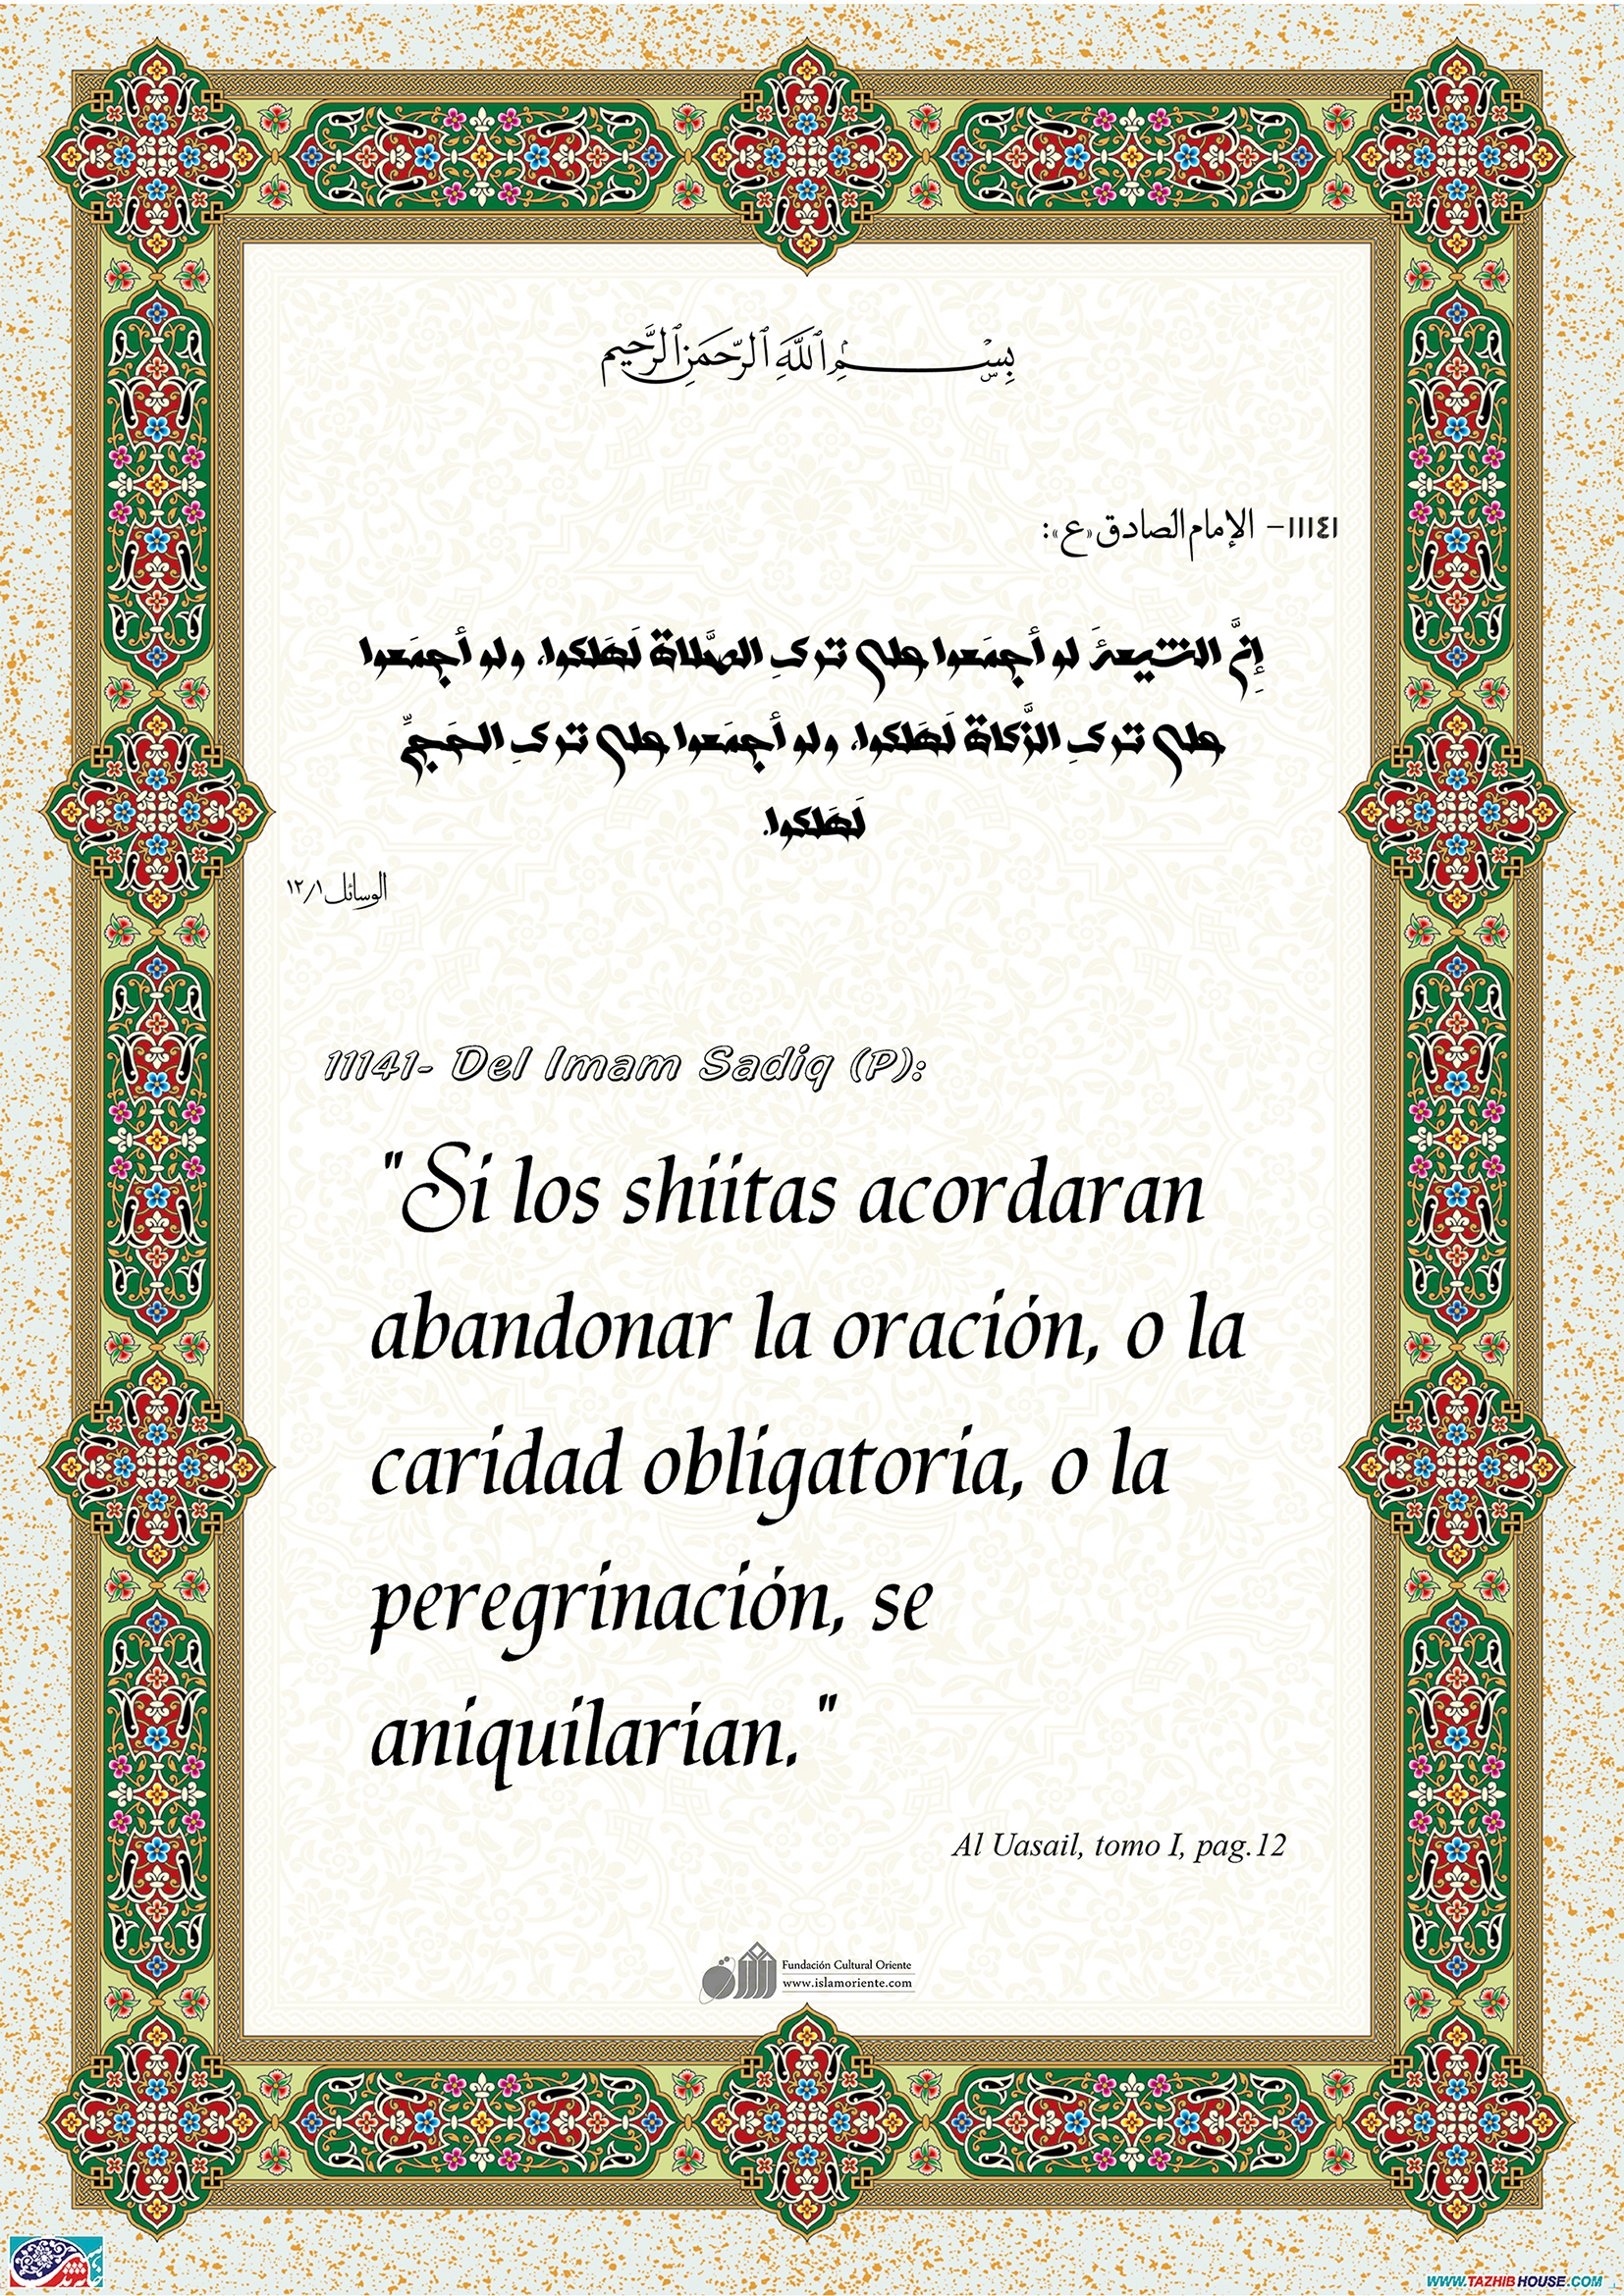 بِسْمِ ٱللَّهِ ٱلرَّحْمَنِ ٱلرَّحِيمِ
١١١٤١– الإمام الصادق «ع»:
إنَّ الشيعةَ لو أجمَعوا على تركِ الصَّلاةِ لَهَلَكوا، ولو أجمَعوا
على تركِ الزَّكاةِ لَهَلَكوا، ولو أجمَعوا على تركِ الحَجِّ
لَهَلَكوا.
الوسائل ١٢/١
11141- Del Imam Sadiq (P):
"Si los shiitas acordaran
abandonar la oración, o la
caridad obligatoria, o la
peregrinación, se
aniquilarían."
Al Uasail, tomo I, pag.12
Fundación Cultural Oriente
www.islamoriente.com
WWW.TAZHIBHOUSE.COM